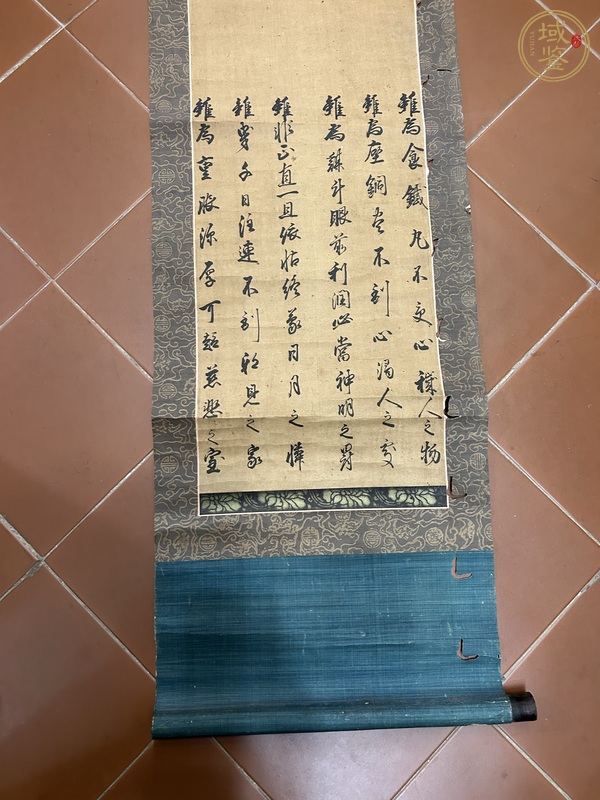 雖為食鐵丸不受心穢人之物
雖為座銅炎不到心濁人之處
雖為謀計眼前利潤必當神明之罸
雖非正直一旦依怙終蒙日月之憐
雖曳千日注連不到邪見之家
雖為重服深厚可趣慈悲之室
域鉴
YUJIAN